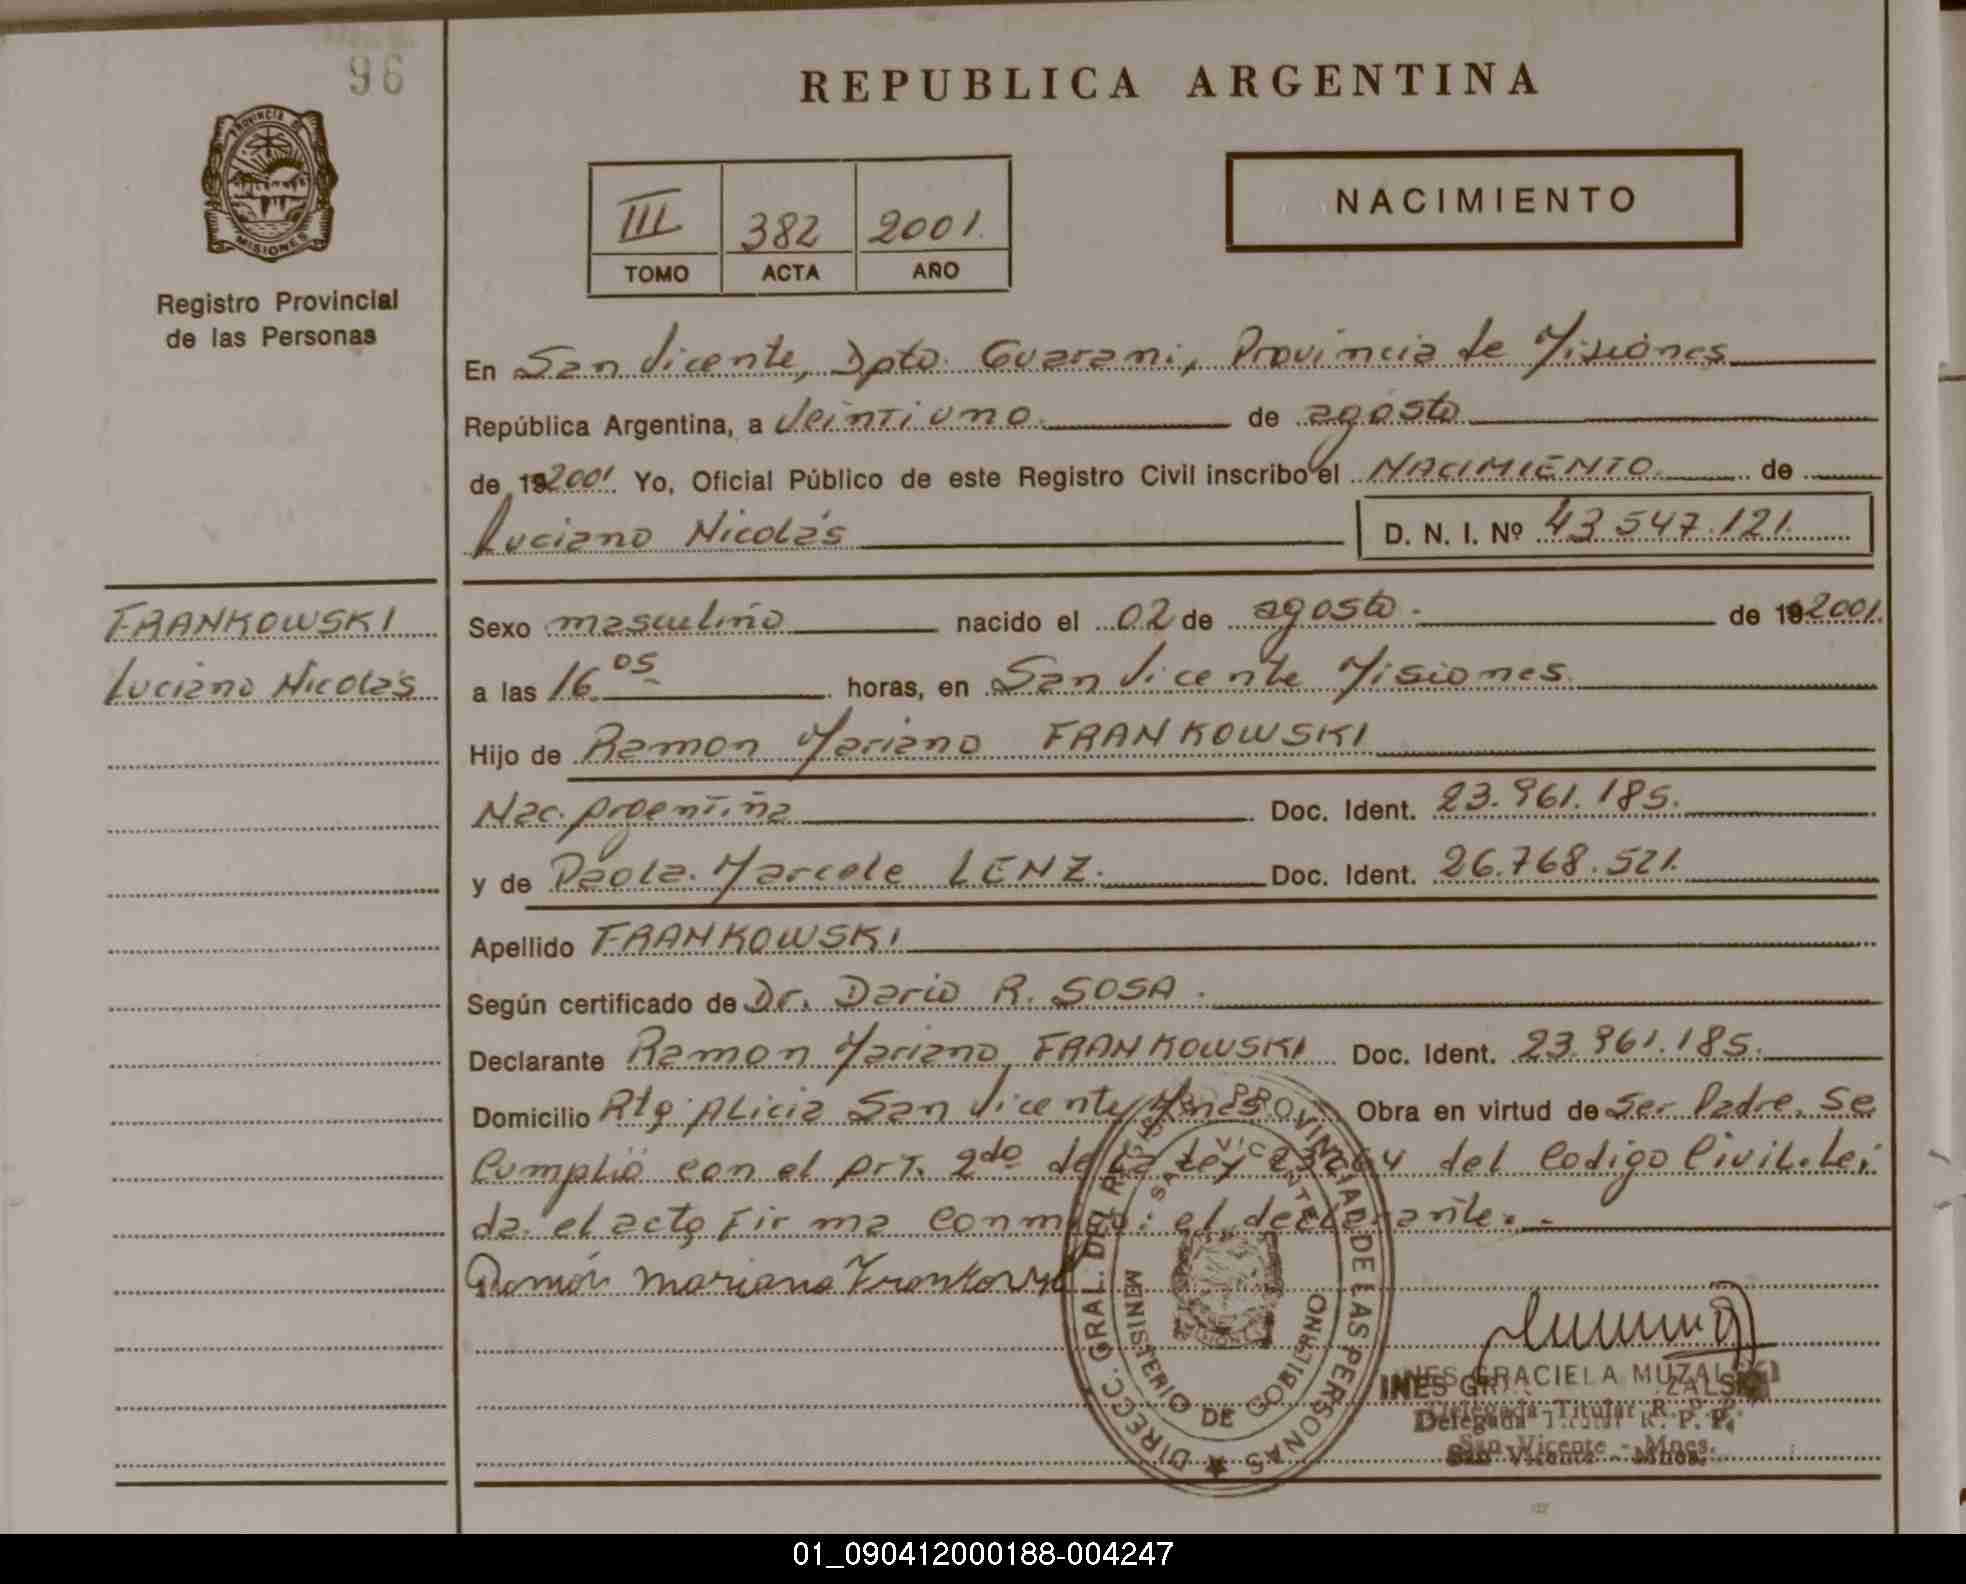 96
REPUBLICA ARGENTINA
PROVINCIA DE
MISIONES
Registro Provincial
de las Personas
III 382 2001.
TOMO ACTA AÑO
NACIMIENTO
En San Vicente, Dpto. Guarani, Provincia de Misiones
República Argentina, a Veintiuno de agosto
de 192001 Yo, Oficial Público de este Registro Civil inscribo el NACIMIENTO de
Luciano Nicolás D. N. I. Nº 43.547.121.
FRANKOWSKI
Luciano Nicolás
Sexo masculino nacido el 02 de agosto. de 192001.
a las 16.05 horas, en San Vicente Misiones.
Hijo de Ramon Mariano FRANKOWSKI
Nac. Argentina Doc. Ident. 23.961.185.
y de Paola Marcela LENZ. Doc. Ident. 26.768.521.
Apellido FRANKOWSKI
Según certificado de Dr. Dario R. SOSA.
Declarante Ramon Mariano FRANKOWSKI Doc. Ident. 23.961.185.
Domicilio Rtg Alicia San Vicente Mnes Obra en virtud de Ser Padre. Se
Cumplió con el Art. 2do de la Ley del Codigo Civil. Lei
da el acta Firma Conmigo: el declarante.-
Ramón Mariano Frankowski
DIRECC. GRAL. DEL REGISTRO PROVINCIAL DE LAS PERSONAS
SAN VICENTE
MINISTERIO DE GOBIERNO
INES GRACIELA MUZAL
Delegada Titular R. P. P.
San Vicente - Mnes.
01_090412000188-004247